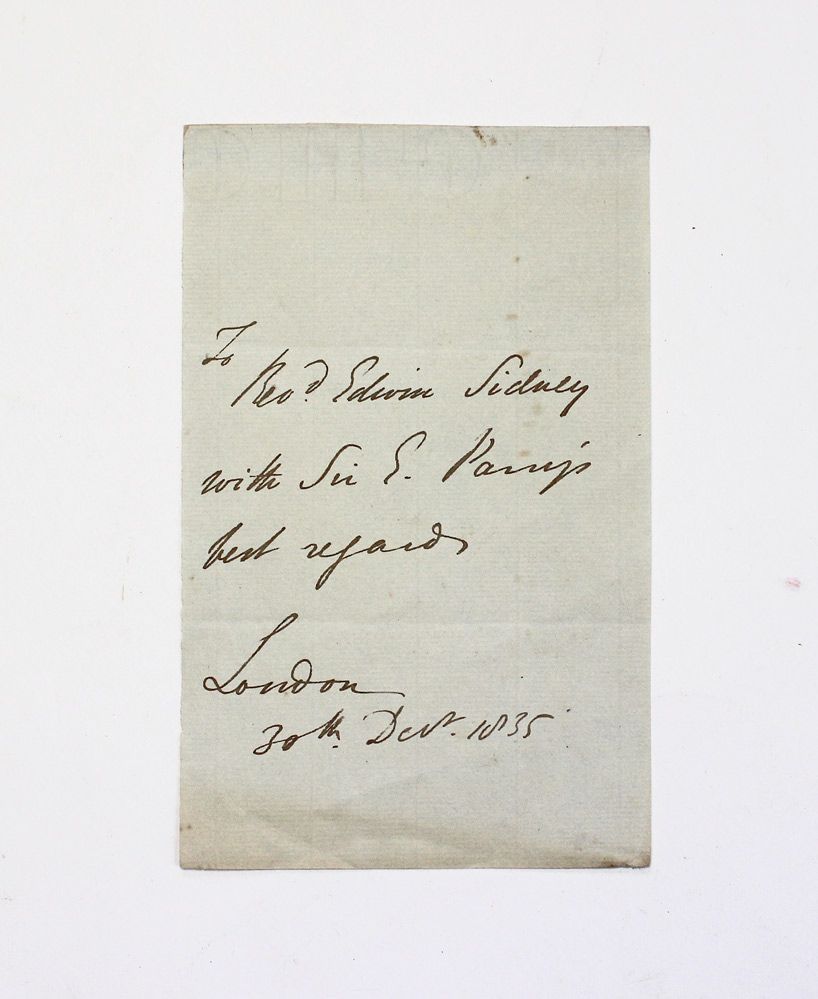 To
Revd. Edwin Sidney
with Sir E. Parry's
best regards
London
30th. Decr. 1835